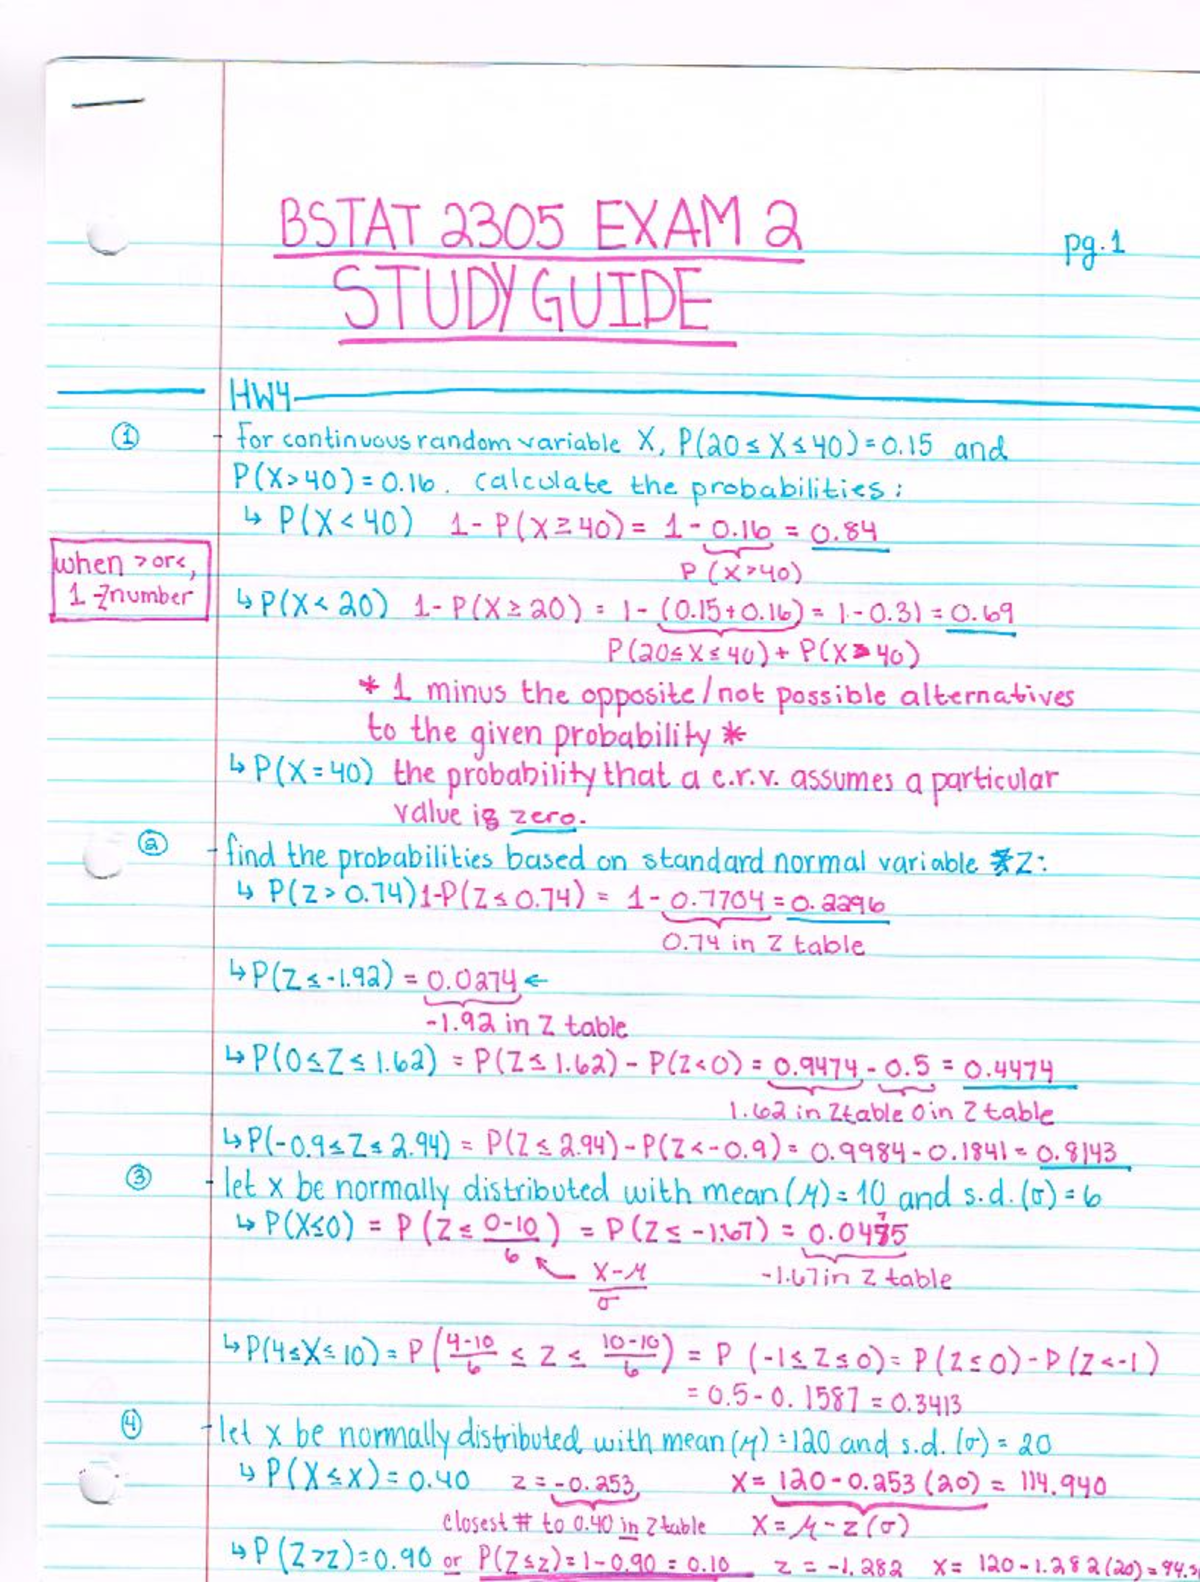 BSTAT 2305 EXAM 2
pg.1
STUDY GUIDE
HW4
① - For continuous random variable X, P(20≤X≤40)=0.15 and
P(X>40)=0.16. calculate the probabilities:
↳ P(X<40) 1-P(X≥40)= 1-0.16 = 0.84
P(X>40)
when >or<,
1 -Z number
↳P(X<20) 1-P(X≥20) = 1-(0.15+0.16)=1-0.31=0.69
P(20≤X≤40)+P(X>40)
* 1 minus the opposite/not possible alternatives
to the given probability *
↳P(X=40) the probability that a c.r.v. assumes a particular
value is zero.
② - find the probabilities based on standard normal variable Z:
↳ P(Z>0.74)1-P(Z≤0.74) = 1-0.7704=0.2296
0.74 in Z table
↳P(Z≤-1.92) = 0.0274←
-1.92 in Z table
↳P(0≤Z≤1.62) = P(Z≤1.62)-P(Z<0)=0.9474-0.5=0.4474
1.62 in Z table 0 in Z table
↳P(-0.9≤Z≤2.94)= P(Z≤2.94)-P(Z<-0.9)= 0.9984-0.1841=0.8143
③ - let x be normally distributed with mean(μ)=10 and s.d.(σ)=6
↳ P(X≤0) = P(Z≤ 0-10/6) = P(Z≤-1.67) = 0.0475
X-μ/σ -1.67 in Z table
↳P(4≤X≤10)=P(4-10/6 ≤ Z ≤ 10-10/6) = P (-1≤Z≤0)=P(Z≤0)-P(Z<-1)
= 0.5-0.1587=0.3413
④ - let x be normally distributed with mean(μ)=120 and s.d.(σ)=20
↳ P(X≤x)=0.40 z=-0.253 X= 120-0.253(20)= 114.940
closest # to 0.40 in Z table X=μ-z(σ)
↳P(Z>z)=0.90 or P(Z≤z)=1-0.90=0.10 z=-1.282 x= 120-1.282(20)=94.